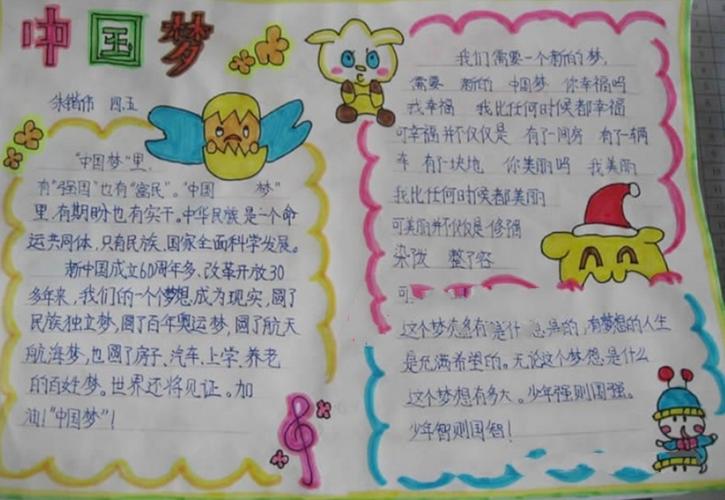 中国梦
四五
"中国梦"里,
有"强国"也有"富民"。"中国 梦"
里,有期盼也有实干。中华民族是一个命
运共同体,只有民族、国家全面科学发展。
新中国成立60周年多、改革开放30
多年来,我们的一个个梦想成为现实,圆了
民族独立梦,圆了百年奥运梦,圆了航天
航海梦,也圆了房子、汽车、上学、养老
的百姓梦。世界还将见证。加
油!"中国梦"!
我们需要一个新的梦,
需要 新的 中国梦 你幸福吗
我幸福 我比任何时候都幸福
可幸福并不仅仅是 有了一间房 有了一辆
车 有了一块地 你美丽吗 我美丽
我比任何时候都美丽
可美丽并不仅仅是修强
染 整了容
可
这个梦 有 是什 是的,有梦想的人生
是充满希望的。无说这个梦想是什么
这个梦想有多大。少年强则国强。
少年智则国智!